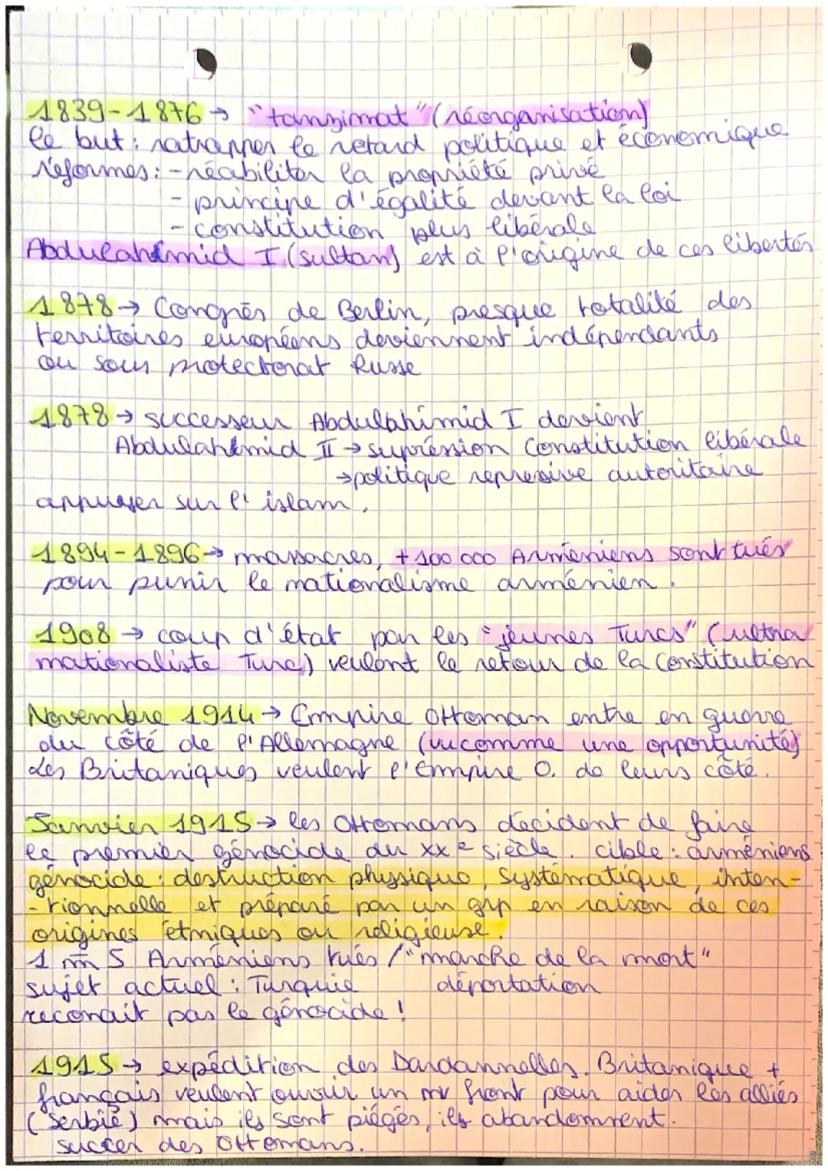 1839-1876 → "tanzimat" (réorganisation)
le but : ratrapper le retard politique et économique
réformes : - réabiliter la propriété privé
- principe d'égalité devant la loi
- constitution plus libérale
Abdulahimid I (sultan) est à l'origine de ces libertés
1878 → Congrès de Berlin, presque totalité des
territoires européens deviennent indépendants
ou sous protectorat Russe
1878 → successeur Abdulahimid I devient
Abdulahimid II → supréssion Constitution libérale
→ politique represive autoritaire
appuyer sur l'islam.
1894-1896 → massacres, + 100 000 Arméniens sont tués
pour punir le nationalisme arménien.
1908 → coup d'état par les "jeunes Turcs" (ultra
nationaliste Turc) veulent le retour de la Constitution
Novembre 1914 → Empire Ottoman entre en guerre
du côté de l'Allemagne (vu comme une opportunité)
Les Britaniques veulent l'Empire O. de leurs côté.
Janvier 1915 → les Ottomans décident de faire
le premier génocide du XXe siècle. cible : arméniens
génocide : destruction physique, systématique, inten-
-tionnelle et préparé par un grp en raison de ces
origines etniques ou religieuse.
1 m 5 Arméniens tués / "marche de la mort"
sujet actuel : Turquie déportation
reconait pas le génocide !
1915 → expédition des Dardannelles. Britanique +
français veulent ouvrir un nv front pour aider les alliés
(Serbie) mais ils sont piégés, ils abandonnent.
succer des Ottomans.